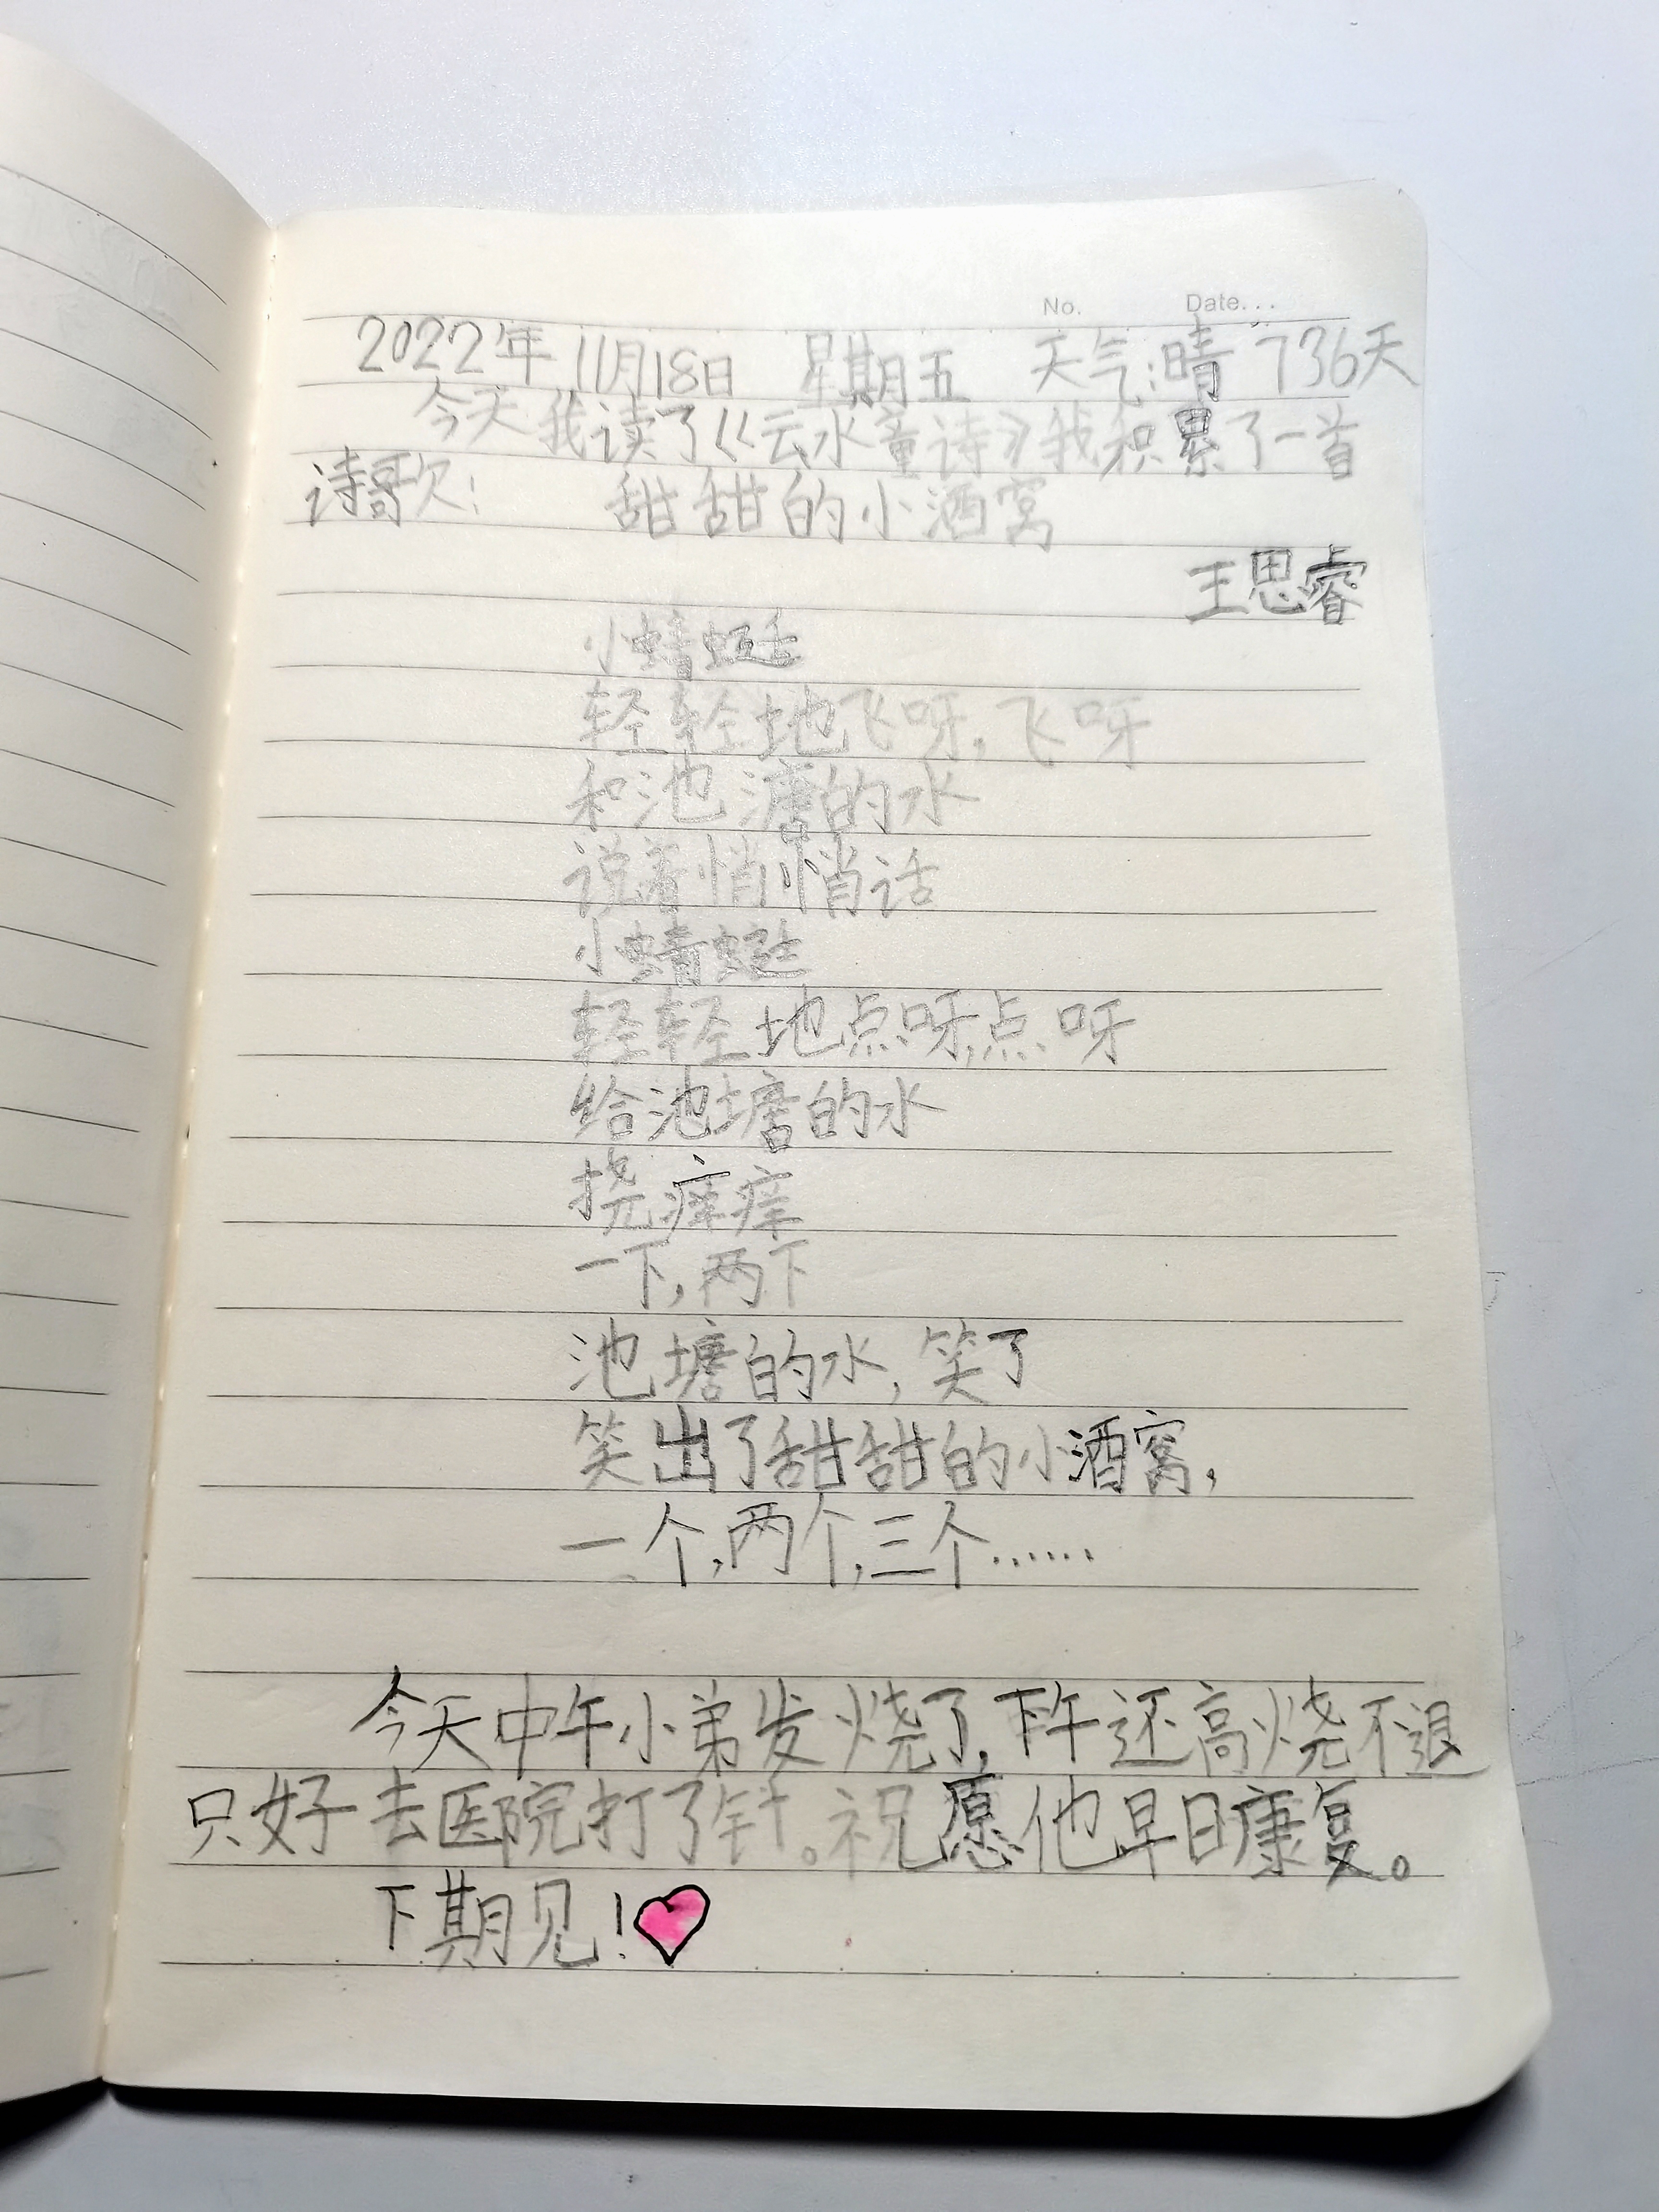 No. Date...
2022年11月18日 星期五 天气:晴 736天
今天我读了《云水童诗》我积累了一首
诗歌: 甜甜的小酒窝
王思睿
小蜻蜓
轻轻地飞呀,飞呀
和池溏的水
说着悄悄话
小蜻蜓
轻轻地点呀,点呀
给池塘的水
挠痒痒
一下,两下
池塘的水,笑了
笑出了甜甜的小酒窝,
一个,两个,三个……
今天中午小弟发烧了,下午还高烧不退
只好去医院打了针。祝愿他早日康复。
下期见!